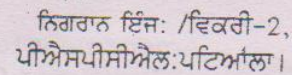 ਨਿਗਰਾਨ ਇੰਜ: /ਵਿਕਰੀ-2,
ਪੀਐਸਪੀਸੀਐਲ:ਪਟਿਆਂਲਾ।